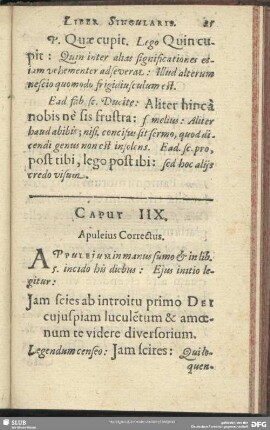 LIBER SINGULARIS. 21
V. Quæ cupit. Lego Quin cu-
pit: Quin inter alias significationes et-
iam vehementer adseverat: Illud alterum
nescio quomodo frigidiusculum est.
Ead. sch. sc. Ducite: Aliter hircà
nobis ne sis frustra: f melius: Aliter
haud abibis; nisi, concisus sit sermo, quod di-
cendi genus non est insolens. Ead. sc. pro,
post tibi, lego post ibi: sed hoc aliis
credo visum.
CAPUT IIX.
Apuleius Correctus.
APPULEIUM in manus sumo & in lib.
5. incido his diebus: Ejus initio le-
gitur:
Jam scies ab introitu primo DEI
cujuspiam luculētum & amœ-
num te videre diversorium.
Legendum censeo: Jam scires: Qui lo-
quen-
SLUB
DFG